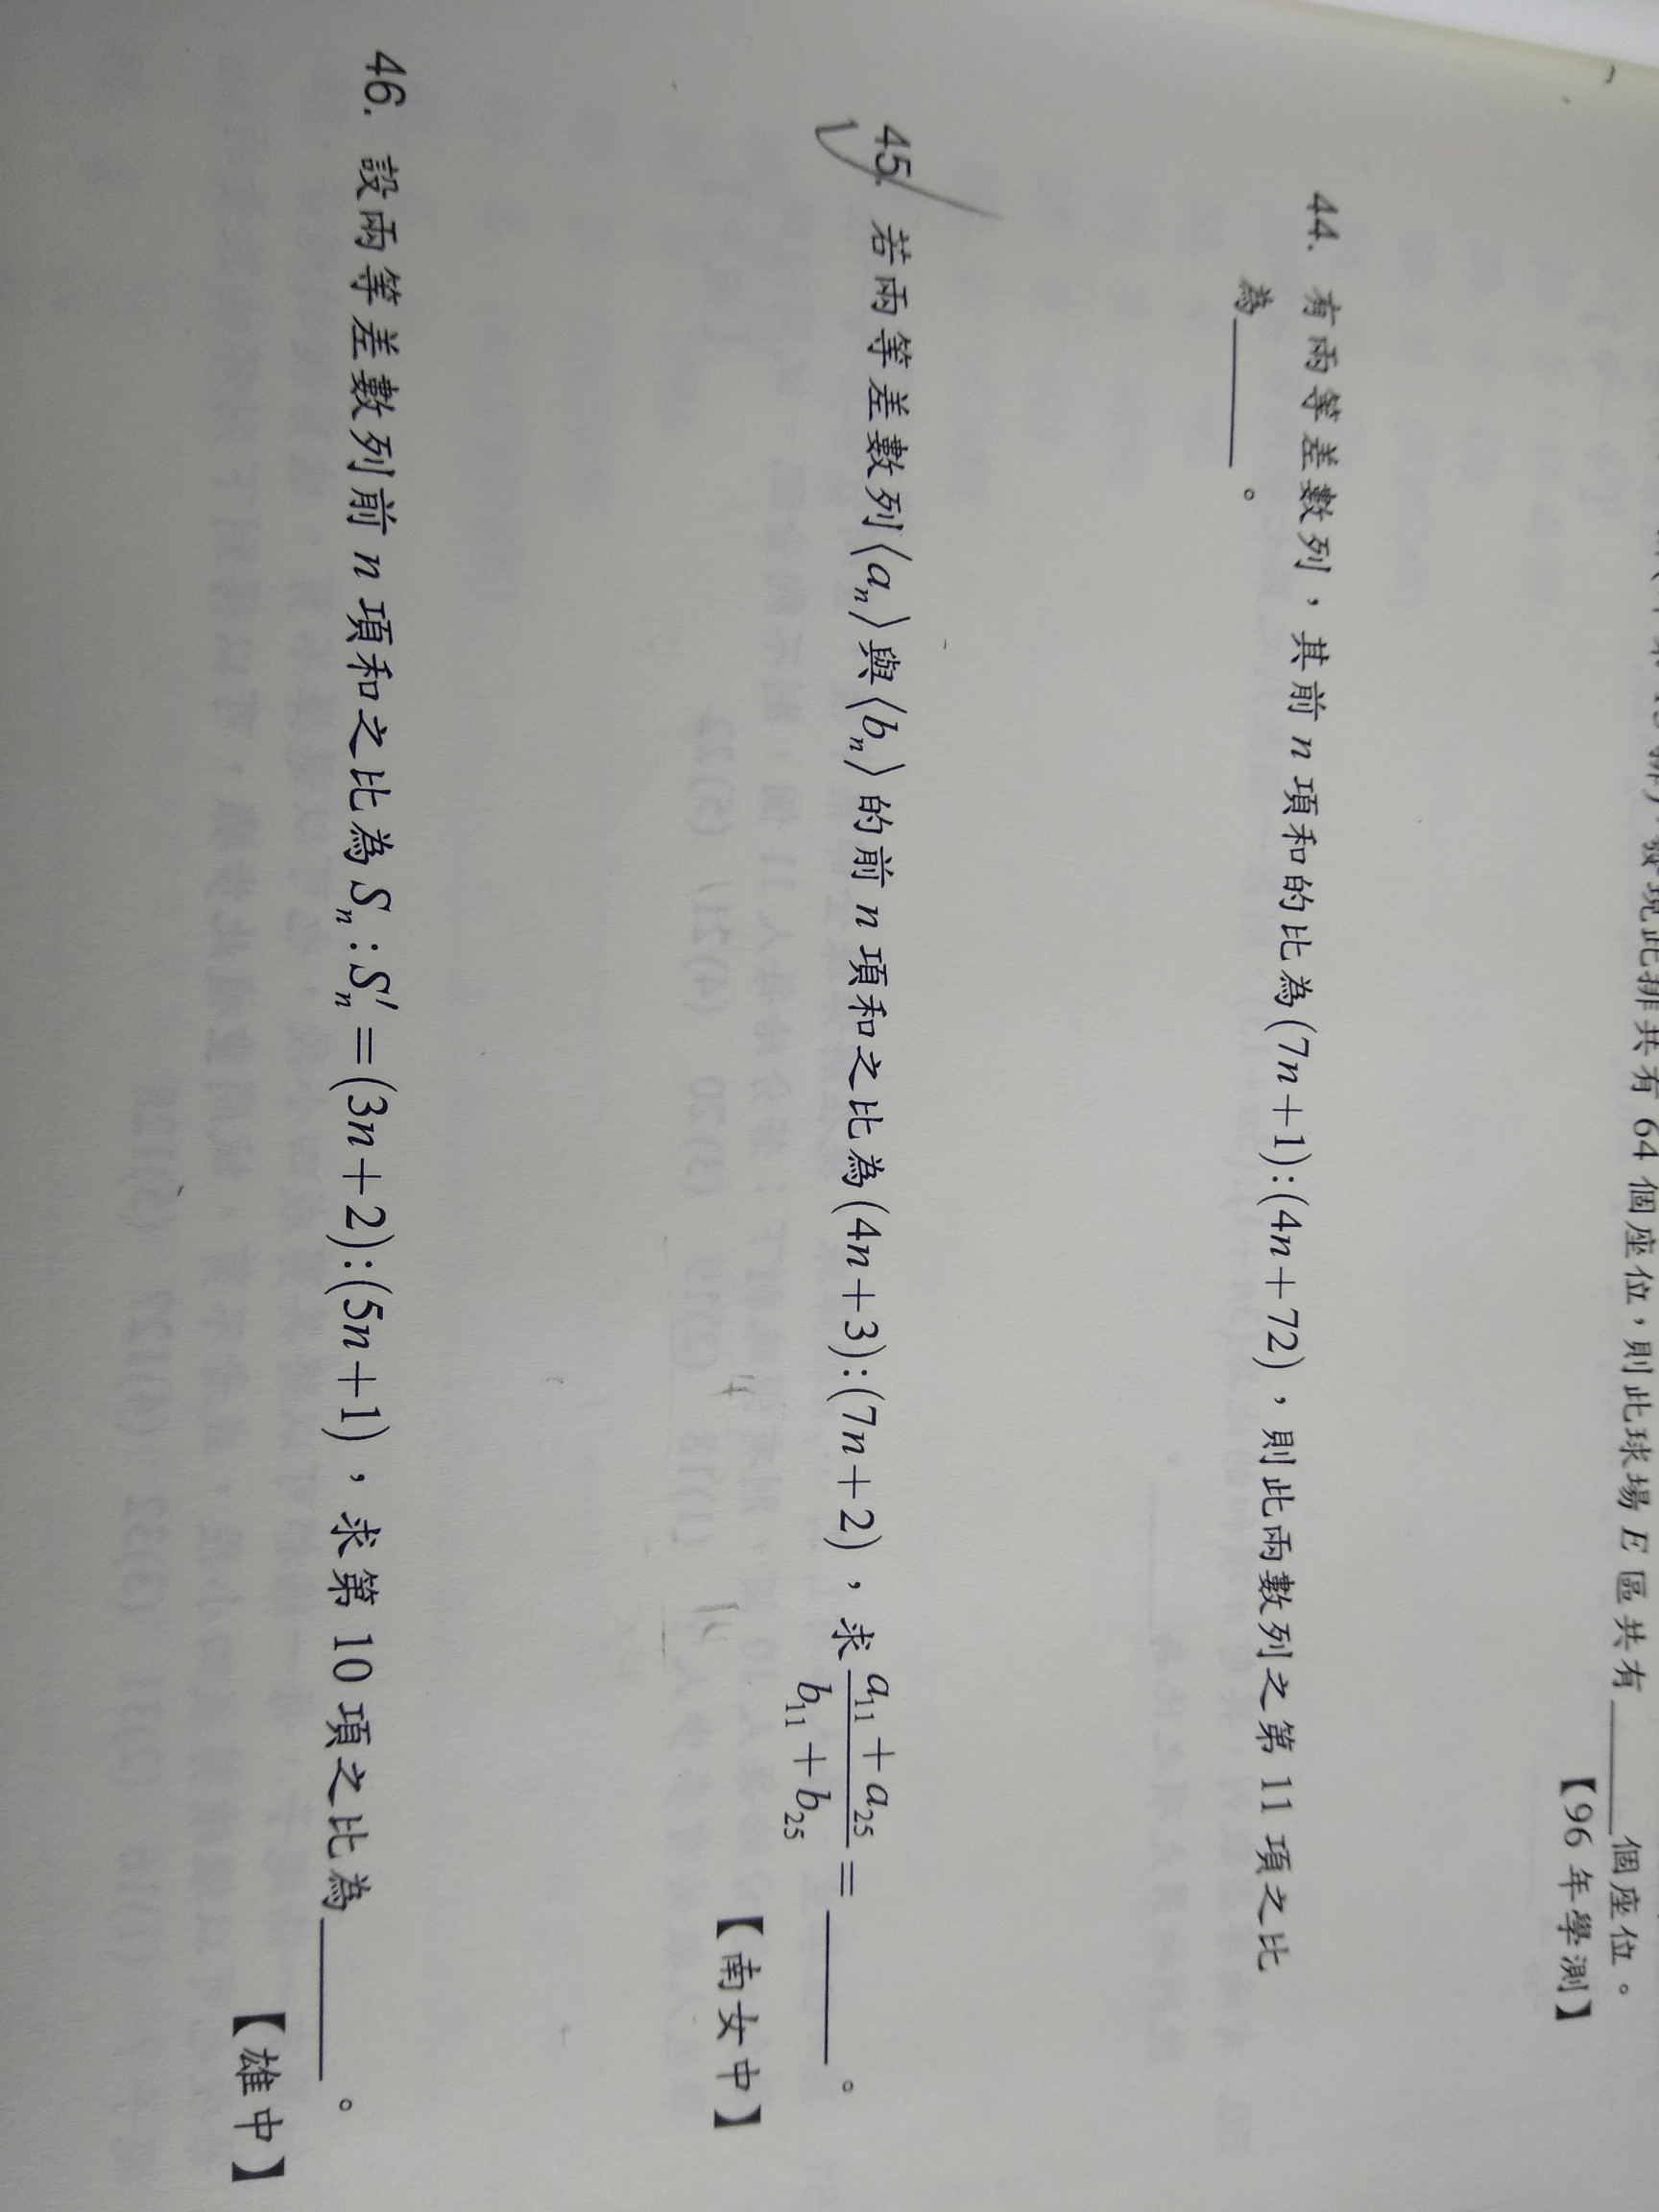 發現此排共有 64 個座位,則此球場 E 區共有______個座位。
【96 年學測】
44. 有兩等差數列,其前 n 項和的比為(7n+1):(4n+72),則此兩數列之第 11 項之比
為______。
45. 若兩等差數列⟨aₙ⟩與⟨bₙ⟩的前 n 項和之比為(4n+3):(7n+2),求 (a₁₁+a₂₅)/(b₁₁+b₂₅) =______。
【南女中】
46. 設兩等差數列前 n 項和之比為 Sₙ:S′ₙ=(3n+2):(5n+1),求第 10 項之比為______。
【雄中】